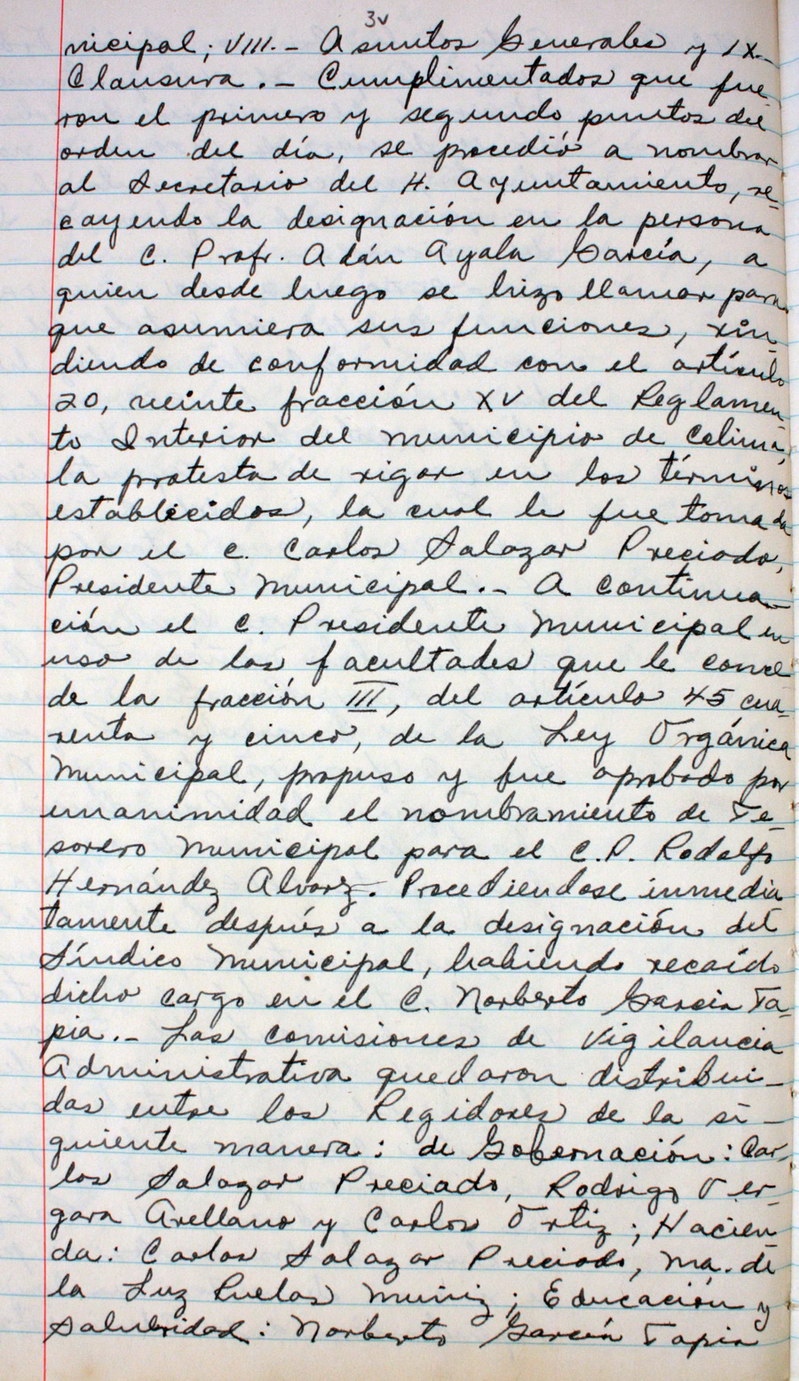 3v
nicipal; VIII.- Asuntos Generales y IX.-
Clausura.- Cumplimentados que fue-
ron el primero y segundo puntos del
orden del día, se procedió a nombrar
al Secretario del H. Ayuntamiento, re-
cayendo la designación en la persona
del C. Profr. Adán Ayala García, a
quien desde luego se hizo llamar para
que asumiera sus funciones, rin-
diendo de conformidad con el artículo
20, veinte fracción XV del Reglamen-
to Interior del Municipio de Colima,
la protesta de rigor en los términos
establecidos, la cual le fue tomada
por el C. Carlos Salazar Preciado,
Presidente Municipal.- A continua-
ción el C. Presidente Municipal en
uso de las facultades que le conce
de la fracción III, del artículo 45 cua-
renta y cinco, de la Ley Orgánica
Municipal, propuso y fue aprobado por
unanimidad el nombramiento de Te-
sorero Municipal para el C.P. Rodolfo
Hernández Alvarez. Procediendose inmedia
tamente después a la designación del
Síndico Municipal, habiendo recaído
dicho cargo en el C. Norberto García Ta-
pia.- Las comisiones de Vigilancia
Administrativa quedaron distribui-
das entre los Regidores de la si-
guiente manera: de Gobernación: Car-
los Salazar Preciado, Rodrigo Ver-
gara Arellano y Carlos Ortiz; Hacien-
da: Carlos Salazar Preciado, Ma. de
la Luz Ruelas Muñiz; Educación y
Salubridad: Norberto García Tapia